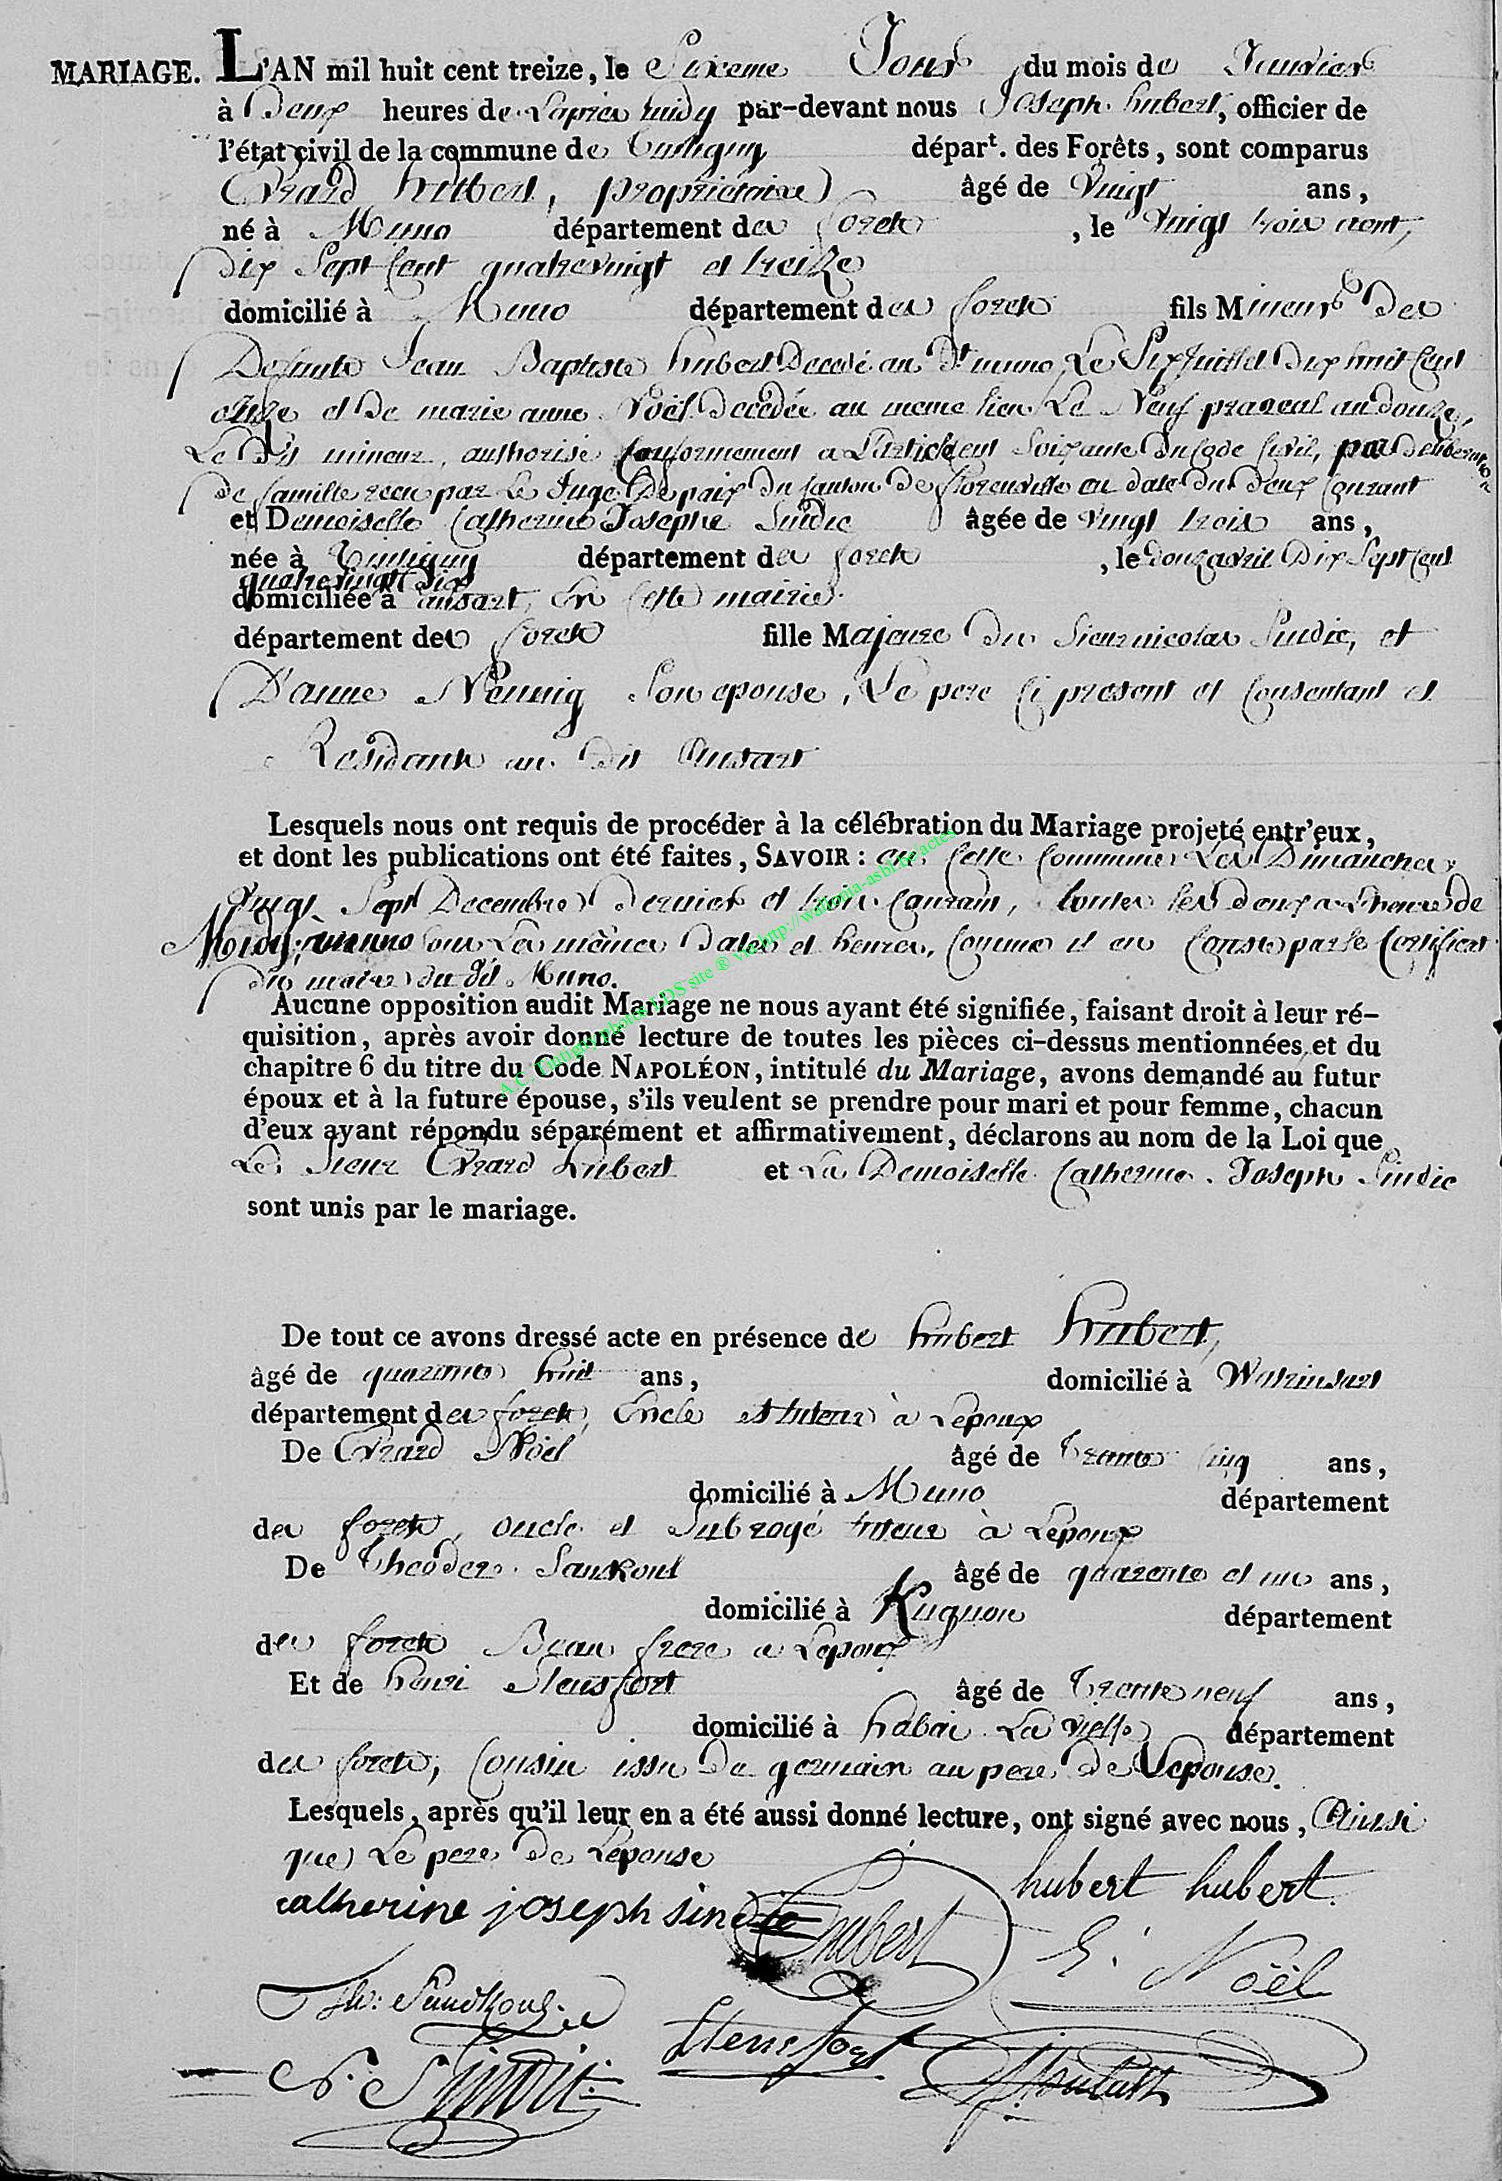 MARIAGE. L'AN mil huit cent treize, le Sixeme Jour du mois de Janvier
à Deux heures de L'apres midy par-devant nous Joseph hubert, officier de
l'état civil de la commune de Tintigny départ. des Forêts, sont comparus
Evrard hubert, propriétaire âgé de Vingt ans,
né à Muno département des foretz, le Vingt trois aout,
Dix Sept Cent quatrevingt et treize
domicilié à Muno département des foretz fils Mineur Des
Defunts Jean Baptiste hubert Decedé au Dt muno, Le Six Juillet Dix huit Cent
onze et De marie anne Noël Decedée au meme lieu Le Neuf an douze,
Le Dit mineur, authorisé Conformement a L'article Cent Soixante Du Code Civil, par Deliberation
De famille recu par Le Juge De paix Du Canton De florenville en date du Deux Courant
et Demoiselle Catherine Josephe Sindic âgée de Vingt trois ans,
née à Tintigny département des foretz, le Douz avril Dix Sept Cent
quatrevingt Dix
domiciliée à ansart, En Cette mairie.
département des foretz fille Majeure Du Sieur nicolas Sindic, et
D'anne Nennig Son epouse, Le pere Ci present et Consentant et
Residants au Dit Ansart
Lesquels nous ont requis de procéder à la célébration du Mariage projeté entr'eux,
et dont les publications ont été faites, SAVOIR : en Cette Commune Les Dimanches
Vingt Sept Decembre Dernier et trois Courant, toutes les deux a L'heure de
Midy; à muno sous Les mêmes Dates et heures, Comme il en Conste par le Certificat
du maire du dit Muno.
Aucune opposition audit Mariage ne nous ayant été signifiée, faisant droit à leur ré-
quisition, après avoir donné lecture de toutes les pièces ci-dessus mentionnées, et du
chapitre 6 du titre du Code NAPOLÉON, intitulé du Mariage, avons demandé au futur
époux et à la future épouse, s'ils veulent se prendre pour mari et pour femme, chacun
d'eux ayant répondu séparément et affirmativement, déclarons au nom de la Loi que
Le Sieur Evrard hubert et La Demoiselle Catherine Joseph Sindic
sont unis par le mariage.
De tout ce avons dressé acte en présence de hubert hubert,
âgé de quarante huit ans, domicilié à Watrinsart
département des foretz, Oncle et tuteur à Lepoux
De Evrard Noël âgé de Trente Cinq ans,
domicilié à Muno département
des foretz, oncle et Subrogé tuteur à Lepoux
De Theodore Sankoul âgé de quarente et un ans,
domicilié à Kugnon département
des foretz Beau frere a Lepoux
Et de henri Stensfort âgé de Trente neuf ans,
domicilié à habai La Vielle département
des foretz, Cousin issu De germain au pere De Lepouse.
Lesquels, après qu'il leur en a été aussi donné lecture, ont signé avec nous, Ainsi
que Le pere De Lepouse
hubert hubert
catherine joseph sindic Ehubert E. Noël
Th: Sandkoul.
N. Sindic Stensfort
A.C. Tintigny photos LDS site ® via http://wallonia-asbl.be/actes